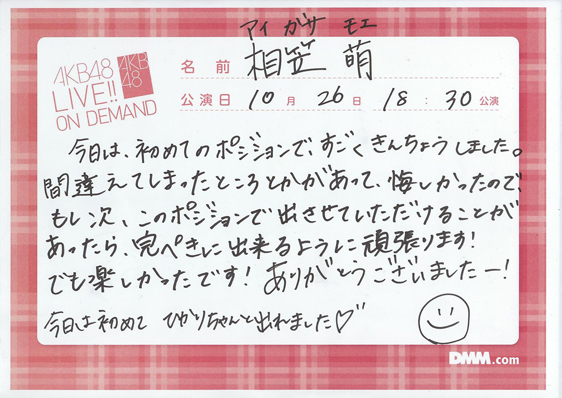 アイ ガサ モエ
AKB48 LIVE!! ON DEMAND
AKB48
名前 相笠 萌
公演日 10月 26日 18:30公演
今日は、初めてのポジションで、すごくきんちょうしました。
間違えてしまったところとかがあって、悔しかったので、
もし次、このポジションで出させていただけることが
あったら、完ぺきに出来るように頑張ります!
でも楽しかったです!ありがとうございましたー!
今日は初めて ひかりちゃんと出れました♡
DMM.com